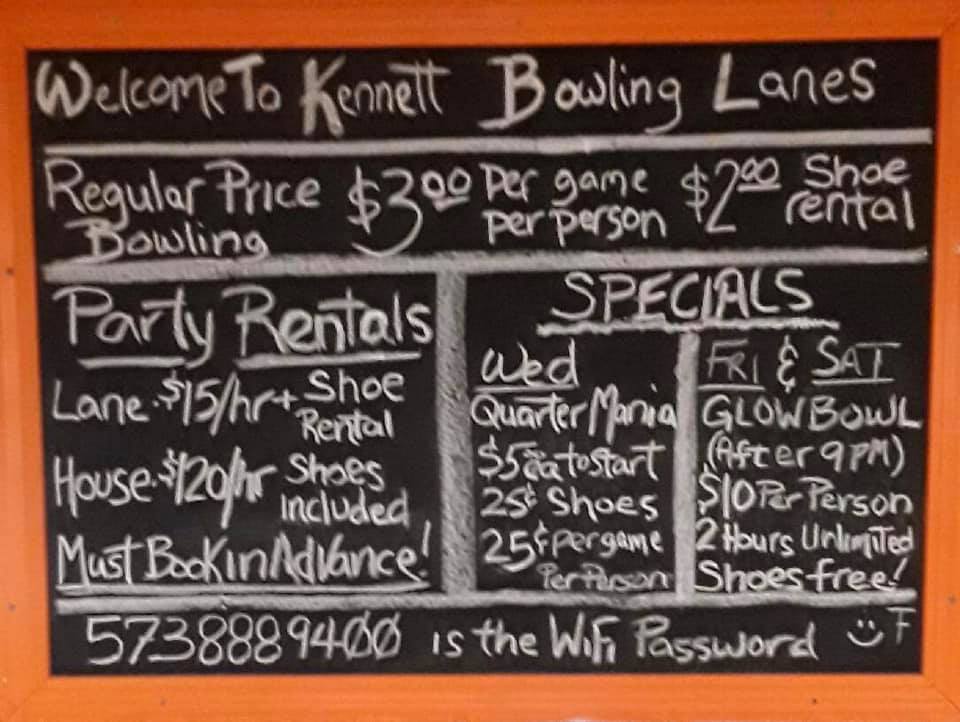 Welcome To Kennett Bowling Lanes
Regular Price Bowling $3.00 Per game per person $2.00 Shoe rental
Party Rentals
Lane - $15/hr + Shoe Rental
House - $120/hr Shoes included
Must Book in Advance!
SPECIALS
Wed
Quarter Mania
$5.00 ea to start
25¢ Shoes
25¢ per game
Per Person
FRI & SAT
GLOW BOWL
(After 9 PM)
$10 Per Person
2 Hours Unlimited
Shoes free!
5738889400 is the WiFi Password
F